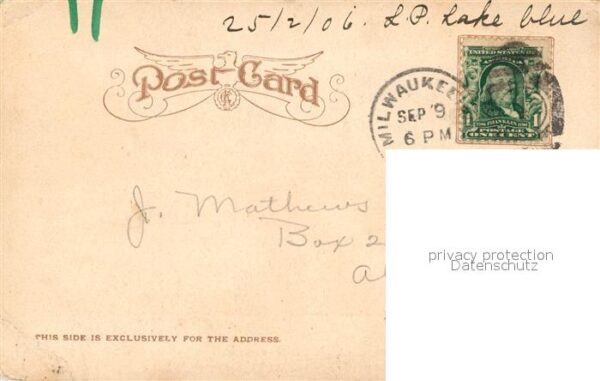 25/2/06. L.P. Lake blue
Post Card
MILWAUKEE
SEP 9
6 PM
UNITED STATES OF
AMERICA
1 FRANKLIN 1
POSTAGE
ONE CENT
J. Mathews
Box 2
privacy protection
Datenschutz
THIS SIDE IS EXCLUSIVELY FOR THE ADDRESS.